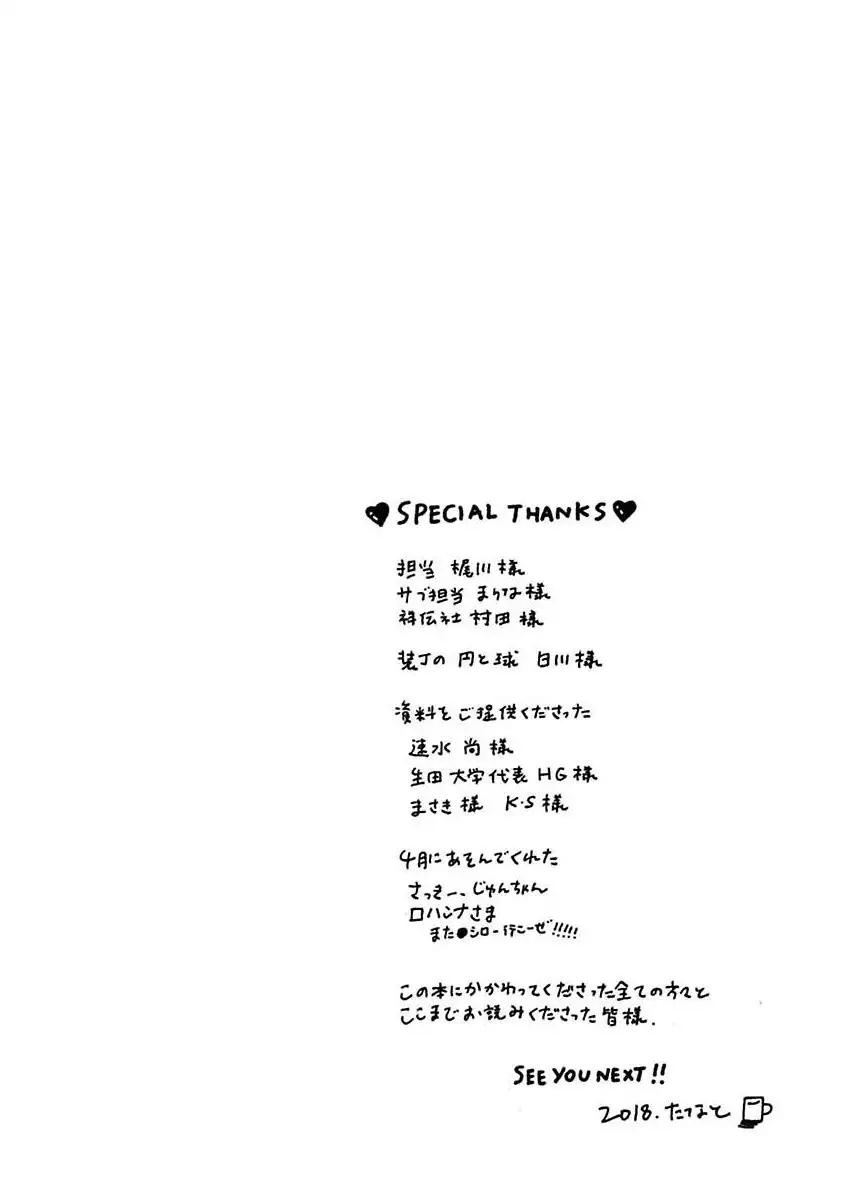 ♥SPECIAL THANKS♥
担当 梶川様
サブ担当 まりな様
祥伝社 村田様
装丁の 円と球 白川様
資料をご提供くださった
速水 尚様
生田 大学代表 HG様
まさき様 K・S様
4月にあそんでくれた
さっきー、じゅんちゃん
ロハンナさま
また●シロー行こーぜ!!!!!
この本にかかわってくださった全ての方々と
ここまでお読みくださった皆様.
SEE YOU NEXT!!
2018.たつもと